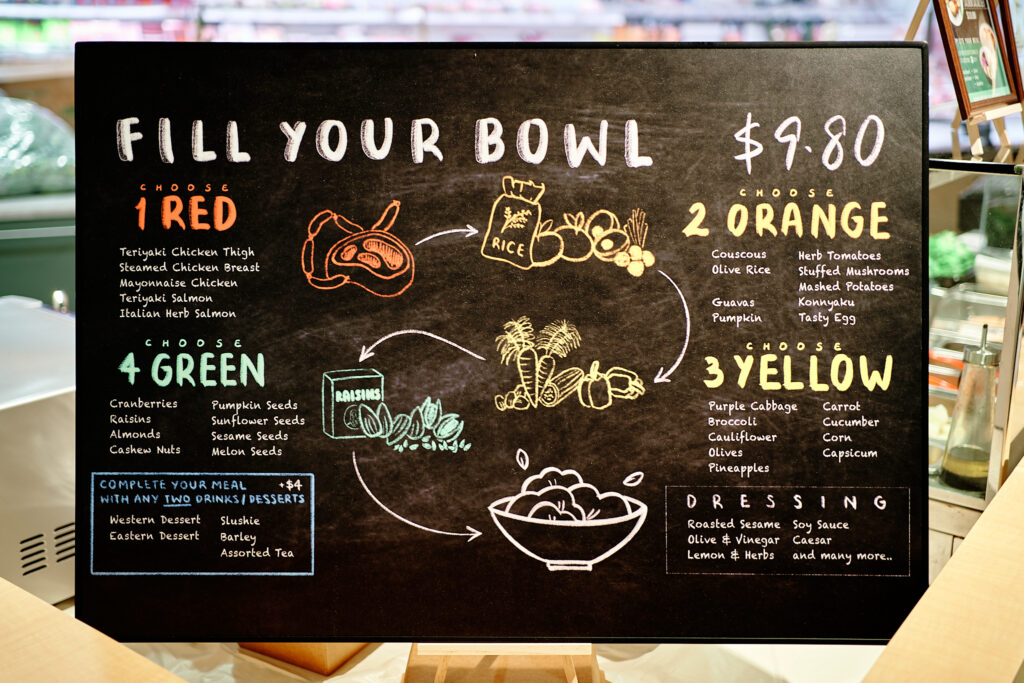 FILL YOUR BOWL
$9.80
CHOOSE
1 RED
Teriyaki Chicken Thigh
Steamed Chicken Breast
Mayonnaise Chicken
Teriyaki Salmon
Italian Herb Salmon
RICE
CHOOSE
2 ORANGE
Couscous
Olive Rice
Guavas
Pumpkin
Herb Tomatoes
Stuffed Mushrooms
Mashed Potatoes
Konnyaku
Tasty Egg
CHOOSE
3 YELLOW
Purple Cabbage
Broccoli
Cauliflower
Olives
Pineapples
Carrot
Cucumber
Corn
Capsicum
CHOOSE
4 GREEN
Cranberries
Raisins
Almonds
Cashew Nuts
Pumpkin Seeds
Sunflower Seeds
Sesame Seeds
Melon Seeds
RAISINS
COMPLETE YOUR MEAL +$4
WITH ANY TWO DRINKS/DESSERTS
Western Dessert
Eastern Dessert
Slushie
Barley
Assorted Tea
DRESSING
Roasted Sesame
Olive & Vinegar
Lemon & Herbs
Soy Sauce
Caesar
and many more..